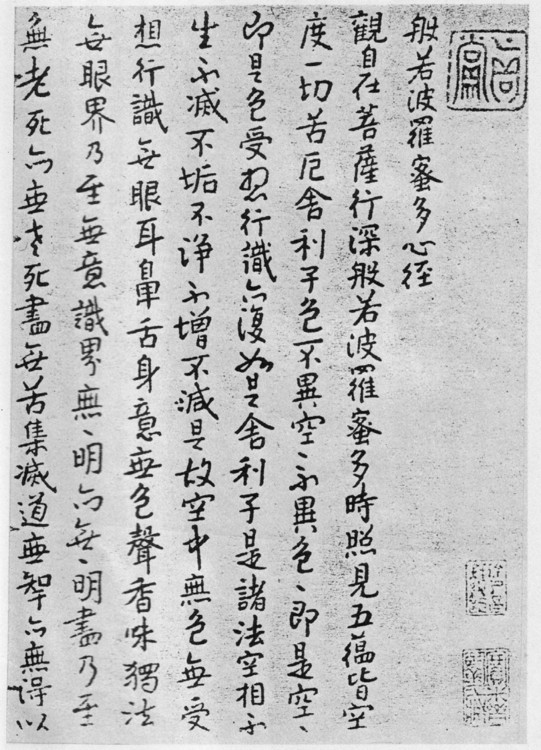 般若波羅蜜多心径
觀自在菩薩行深般若波羅蜜多時照見五蘊皆空
度一切苦厄舍利子色不異空、不異色、即是空、
即是色受想行識亦復如是舍利子是諸法空相不
生不滅不垢不淨不增不減是故空中無色無受
想行識無眼耳鼻舌身意無色聲香味獨法
無眼界乃至無意識界無、明亦無、明盡乃至
無老死亦無老死盡無苦集滅道無智亦無得以